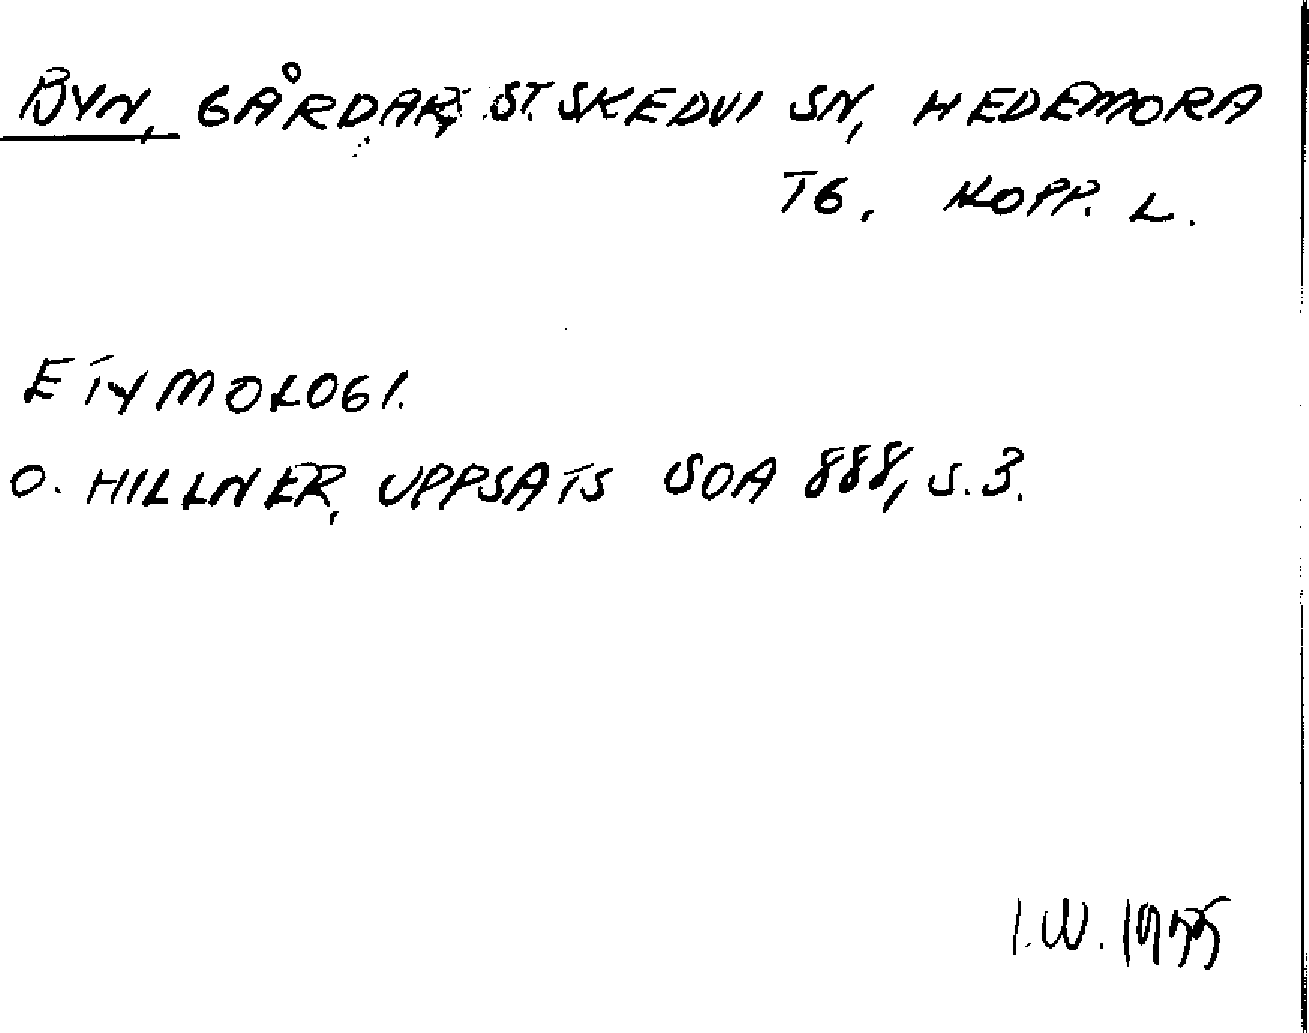 BYN, GÅRDAR, ST SKEDVI SN, HEDEMORA
TG. KOPP. L.
ETYMOLOGI.
O. HILLNER, UPPSATS SOA 888, S. 3.
I.W.